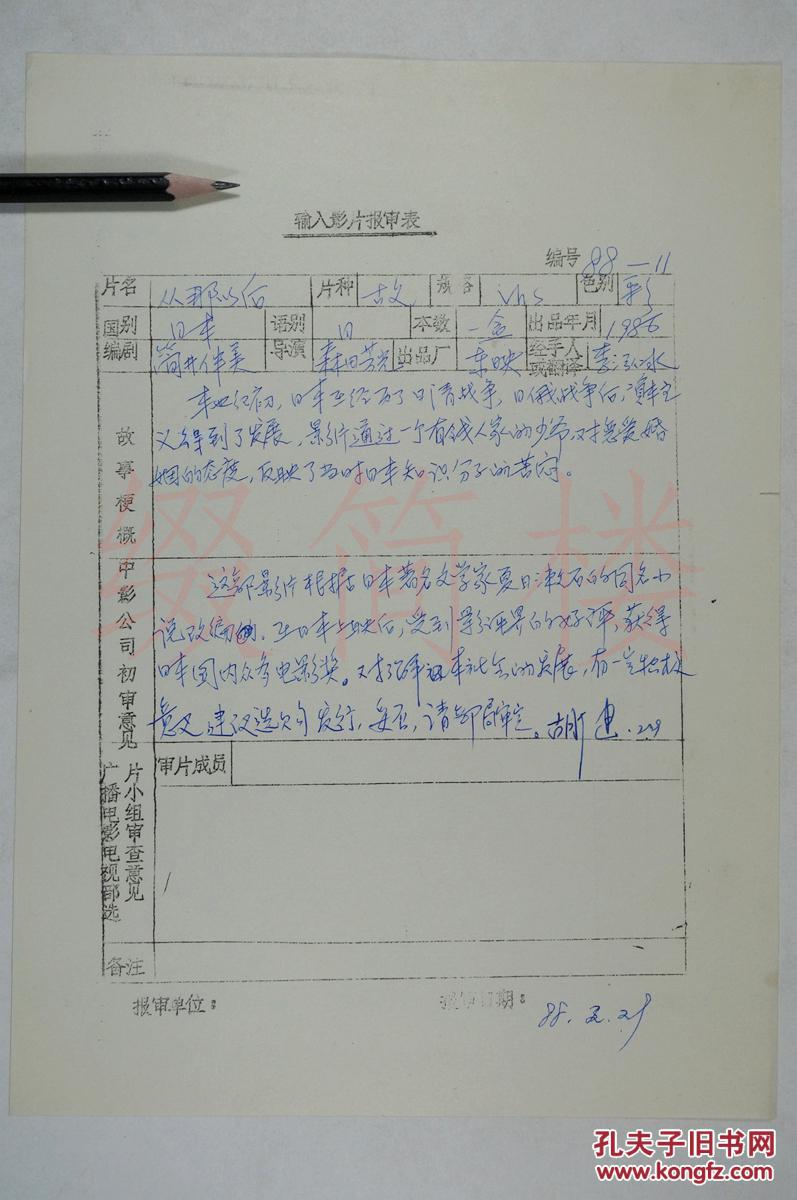 输入影片报审表
编号 88—11
片名 从那以后 片种 故 规格 VHS 色别 彩
国别 日本 语别 日 本数 一盒 出品年月 1986
编剧 筒井伴美 导演 森田芳光 出品厂 东映 经手人或翻译 李泓冰
故事梗概
本世纪初，日本在经历了日清战争，日俄战争后，资本主
义得到了发展，影片通过一个有钱人家的少爷对恋爱婚
姻的态度，反映了当时日本知识分子的苦闷。
中影公司初审意见
这部影片根据日本著名文学家夏目漱石的同名小
说改编的，在日本上映后，受到影评界的好评，获得
日本国内众多电影奖。对了解日本社会的发展，有一定
意义 建议选购发行，妥否，请部局审定。胡健
广播电影电视部选片小组审查意见
审片成员
备注
报审单位：
报审日期： 88.2.29
缀简楼
孔夫子旧书网
www.kongfz.com